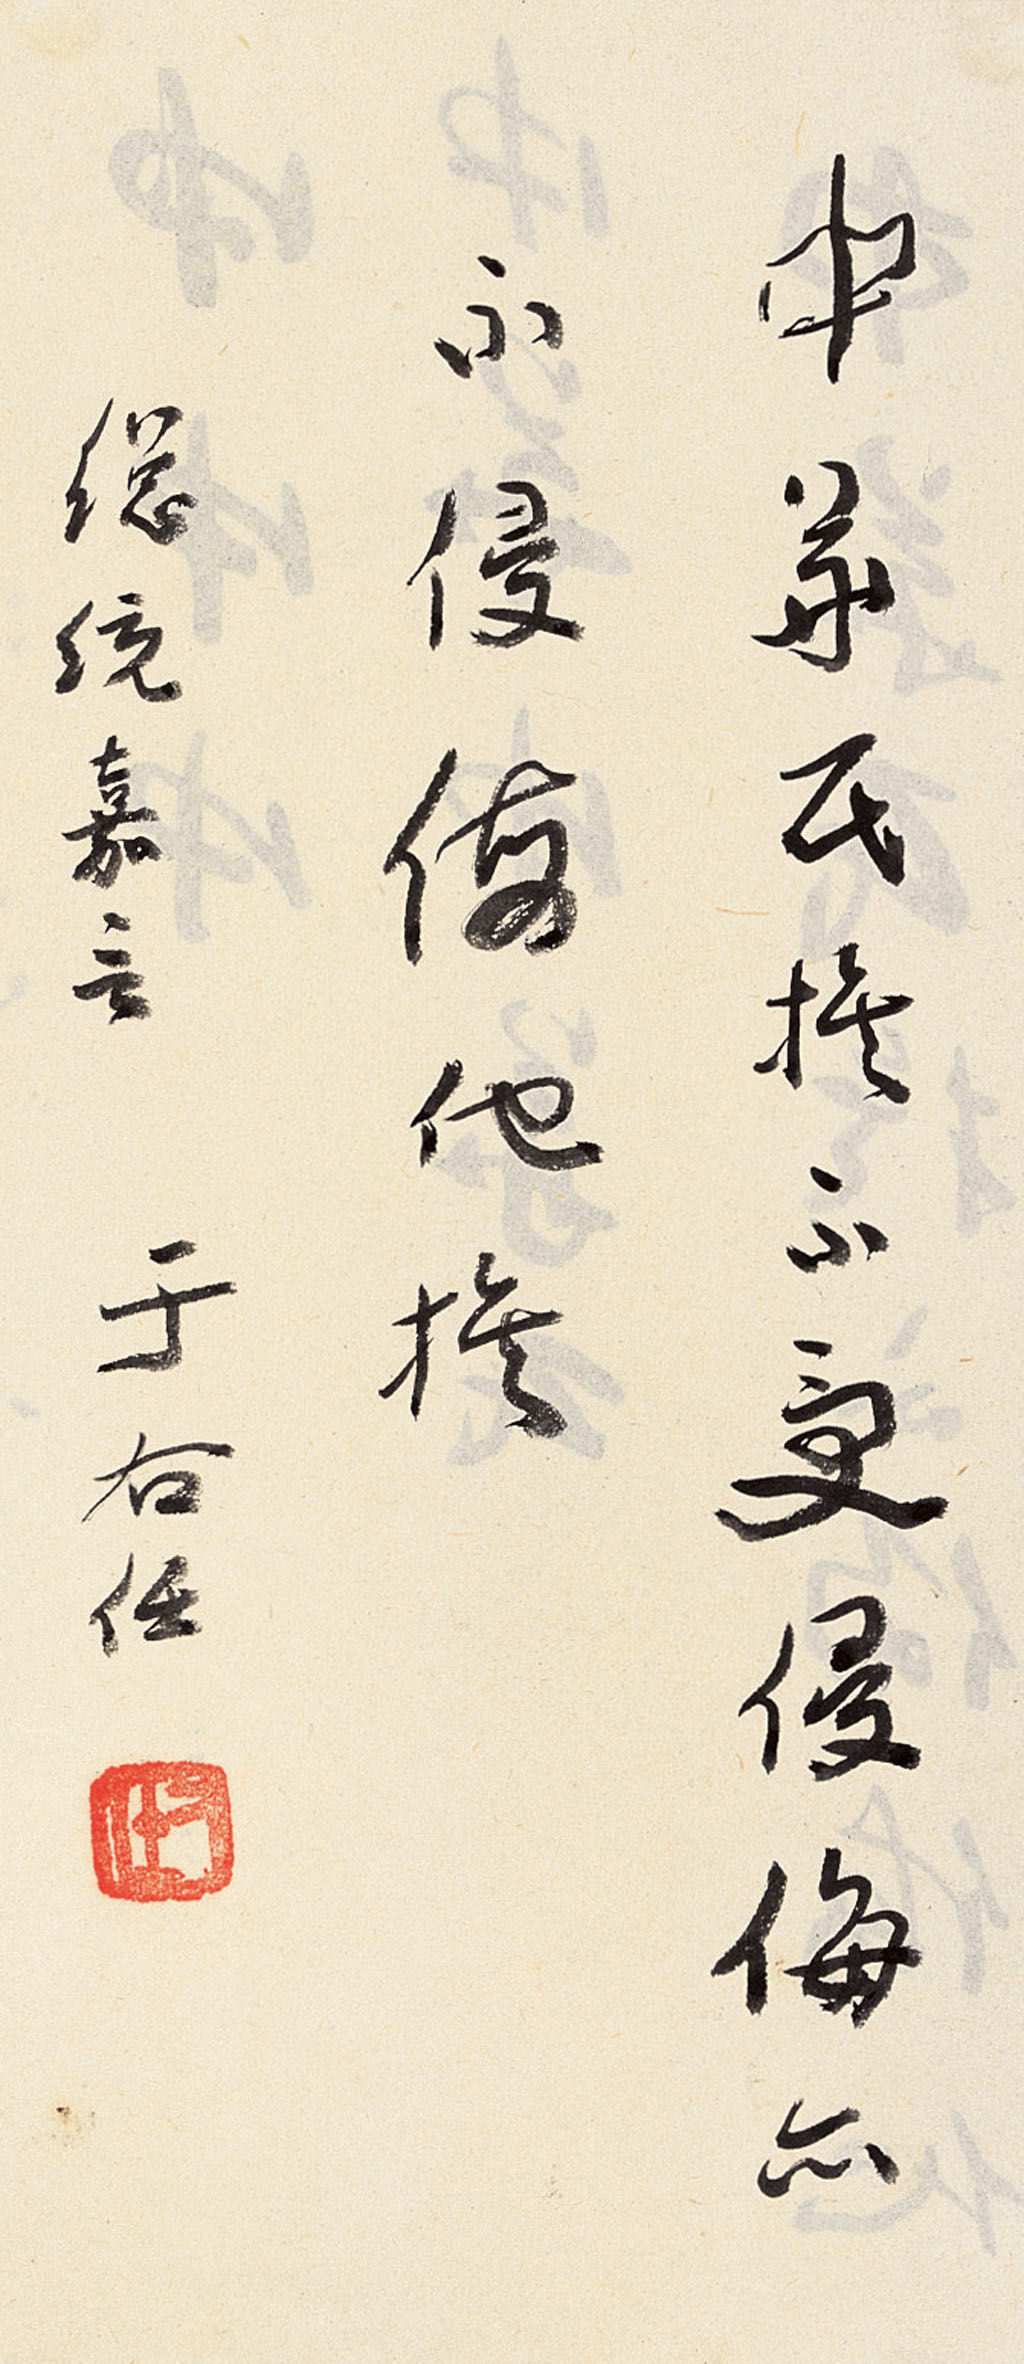 中華民族不受侵侮亦
不侵侮他族
總統嘉言 于右任